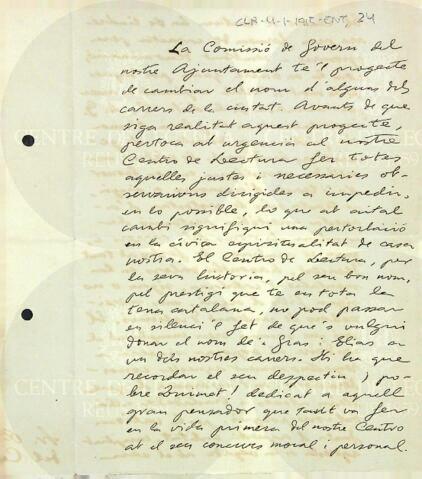 CLR-M-1-1915-ENT, 24
La Comissió de Govern del
nostre Ajuntament te'l projecte
de cambiar el nom d'alguns dels
carrers de la ciutat. Avants de que
siga realitat aquest projecte,
pertoca at urgencia al nostre
Centro de Lectura fer totes
aquelles justes i necessaries ob-
servacions dirigides a impedir,
en lo possible, lo que at aital
cambi signifiqui una pertorbació
en la cívica espiritualitat de casa
nostra. El Centro de Lectura, per
la seva historia, pel seu bon nom,
pel prestigi que te en tota la
terra catalana, no pod passar
en silenci'l fet de que's vulgui
donar el nom de Gras i Elias a
un dels nostres carrers. Hi ha que
recordar el seu despectiu ¡ po-
bre Quinet! dedicat a aquell
gran pensador que tant va fer
en la vida primera del nostre Centro
at el seu concurs moral i personal.
CENTRE DE
CENTRE DE LECTURA